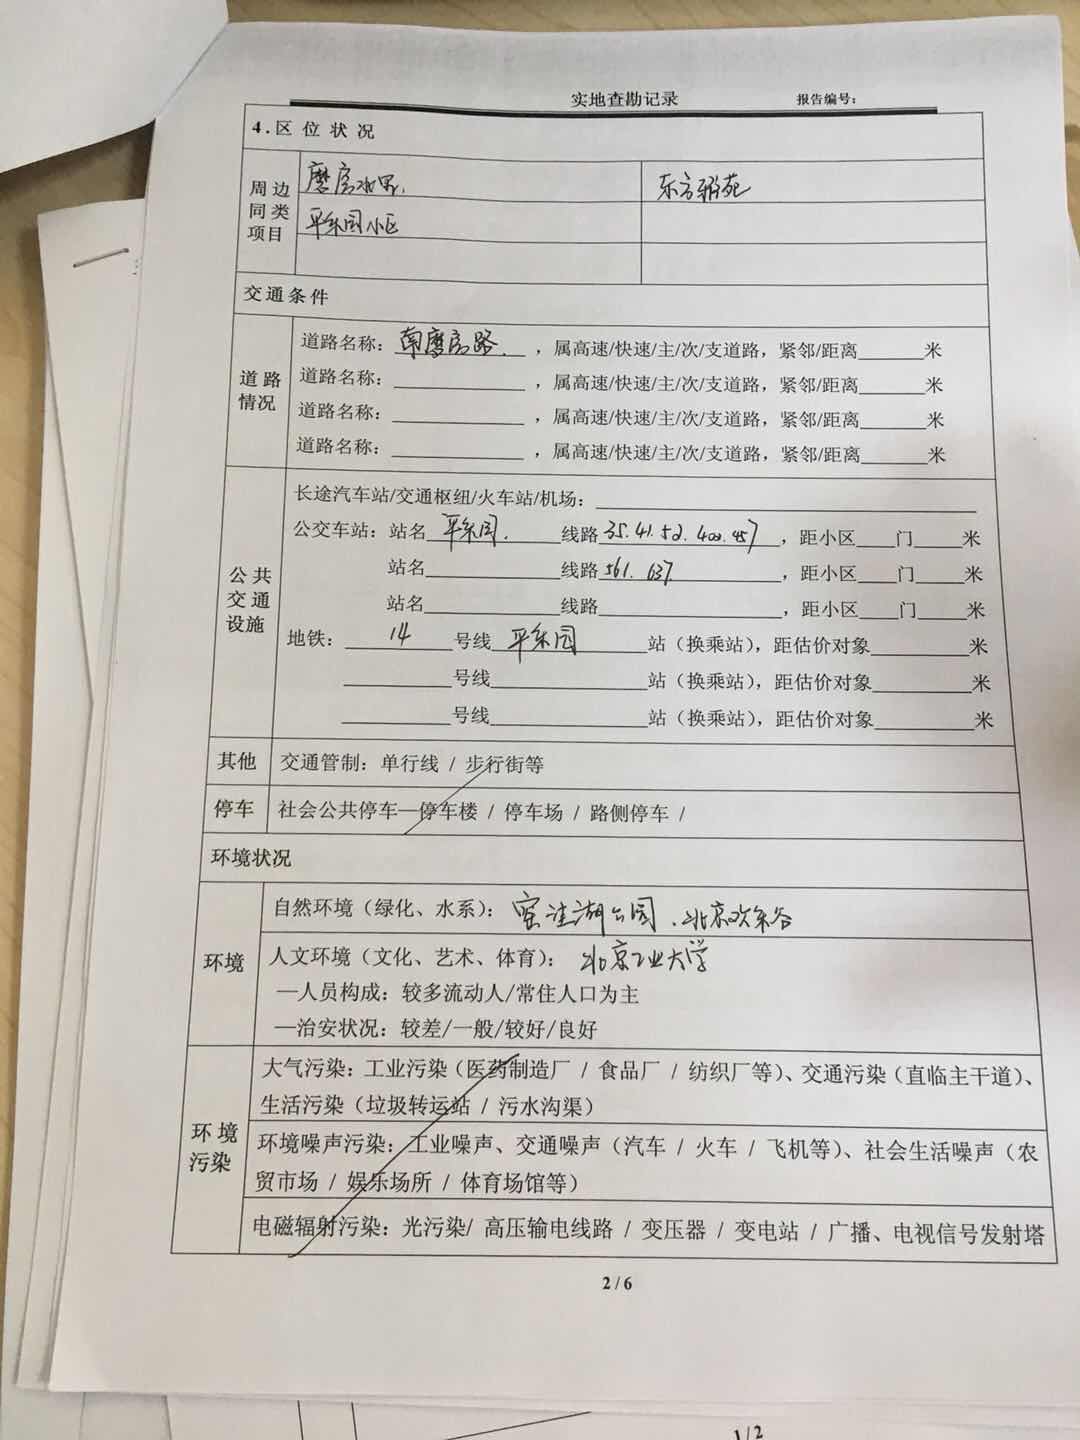 实地查勘记录 报告编号：
4.区 位 状 况
周边同类项目 磨房水果. 东方雅苑
平乐园小区
交通条件
道路情况
道路名称：南磨房路. ，属高速/快速/主/次/支道路，紧邻/距离______米
道路名称：____________ ，属高速/快速/主/次/支道路，紧邻/距离______米
道路名称：____________ ，属高速/快速/主/次/支道路，紧邻/距离______米
道路名称：____________ ，属高速/快速/主/次/支道路，紧邻/距离______米
公共交通设施
长途汽车站/交通枢纽/火车站/机场：____________
公交车站：站名 平乐园. 线路 35.41.52.402.457 ，距小区____门____米
站名____________线路 561. 637 ，距小区____门____米
站名____________线路____________，距小区____门____米
地铁： 14 号线 平乐园 站（换乘站），距估价对象________米
________号线____________站（换乘站），距估价对象________米
________号线____________站（换乘站），距估价对象________米
其他 交通管制：单行线 / 步行街等
停车 社会公共停车—停车楼 / 停车场 / 路侧停车 /
环境状况
环境
自然环境（绿化、水系）： 窑洼湖公园、北京欢乐谷
人文环境（文化、艺术、体育）： 北京工业大学
—人员构成：较多流动人/常住人口为主
—治安状况：较差/一般/较好/良好
环境污染
大气污染：工业污染（医药制造厂 / 食品厂 / 纺织厂等）、交通污染（直临主干道）、
生活污染（垃圾转运站 / 污水沟渠）
环境噪声污染：工业噪声、交通噪声（汽车 / 火车 / 飞机等）、社会生活噪声（农
贸市场 / 娱乐场所 / 体育场馆等）
电磁辐射污染：光污染/ 高压输电线路 / 变压器 / 变电站 / 广播、电视信号发射塔
2 / 6
1/2